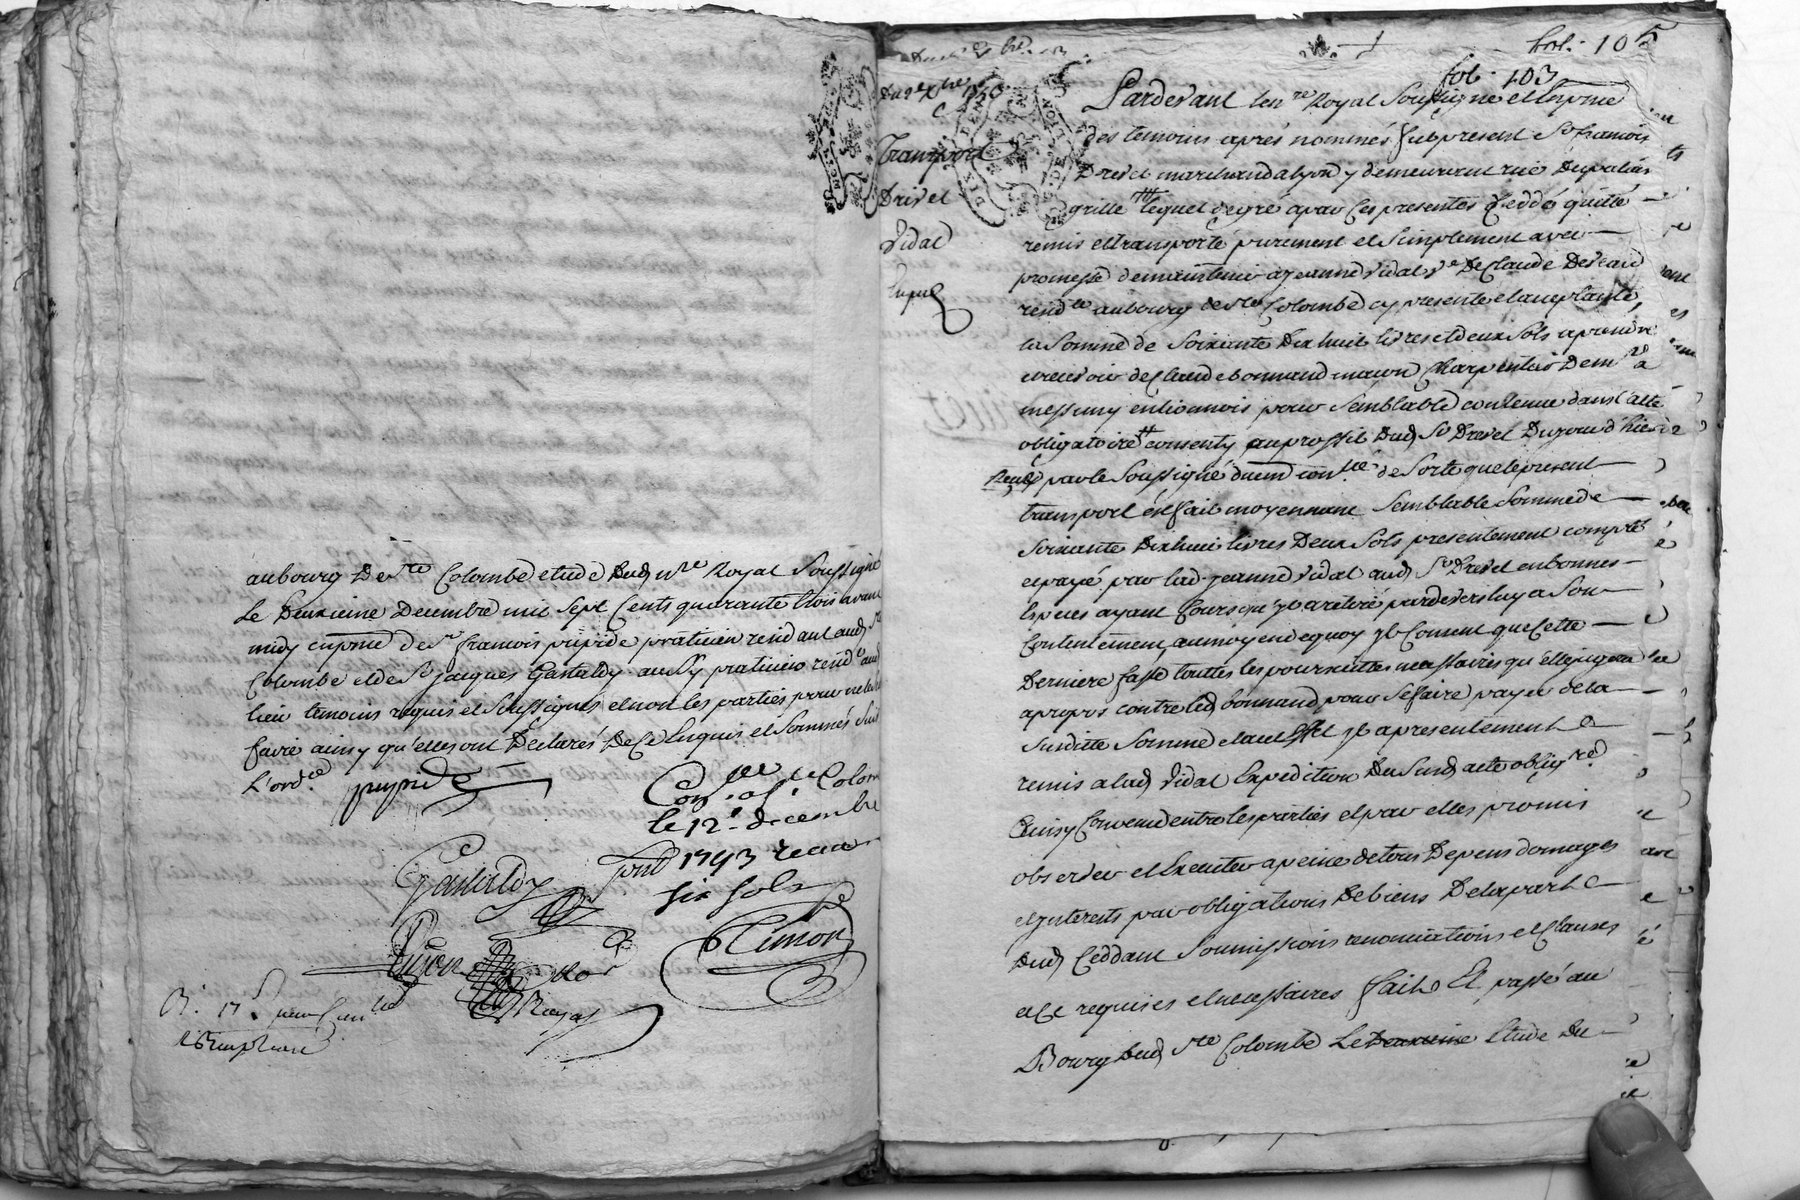 aubourg De Ste Colombe etude Dud nre Royal Soussigné
Le Deuxieme Decembre mil Sept Cents quarante trois avant
midy en pnce de sr francois pupide praticien residant aud Ste
Colombe et de Sr jacques Gastaldy aussy praticien resid.t aud
lieu temoins requis et Soussignés et non les parties pour ne le
favoir ainsy qu'elles ont Declarés De Ce Enquis et Sommés Suiv
L'ord.ce pupide
Con.lle a Ste Colom
le 12e decembre
1743 recu
six sols
Gastaldy
Simon
Dujon
nore
Royal
fol. 105
fol. 103
Du 2e Xbre 1743
Transport
Drevet
Vidal
Pardevant le nre Royal Soussigné et En pnce
des temoins aprés nommés fut present Sr francois
Drevet marchand a lyon y demeurant rue Dupalais
grille lequel de gré a par Ces presentes Ceddé quitté
remis et transporté purement et Simplement avec
promesse de maintenir a jeanne Vidal ve De Claude Deveaud
resid.te au bourg de Ste Colombe cy presente et acceptante,
la Somme de Soixante Dix huit livres et deux Sols a prendre
et recevoir de Claude bonnand macon Charpentier Dem.t a
messimy en lionnois pour Semblable contenue dans l'acte
obligatoire consenty au proffit Dud Sr Drevet Du jour d'hier
Receu par le Soussigné duem.t con.llé de Sorte que le present
transport est fait moyennant Semblable Somme de
Soixante Dix huit livres Deux Sols presentement compté
et payé par lad. jeanne Vidal aud Sr Drevet en bonnes
Especes ayant Cours qu'il a retiré pardevers luy a Son
Contentement au moyen de quoy il Consent que Cette
Derniere fasse touttes les poursuittes necessaires qu'elle jugera
a propos contre led bonnand pour Se faire payer de la
Susditte Somme et a cet Effet il a presentement
remis a lad Vidal Expedition Du Susd acte oblig.re
Ainsy Convenu entre les parties et par elles promis
observer et Executer a peine de tous Depens domages
et jnterests par obligations De biens De la part
Dud Ceddant Soumissions renonciations et Clauses
a Ce requises et necessaires fait Et passé au
Bourg Dud Ste Colombe Le Deuxieme Etude Du